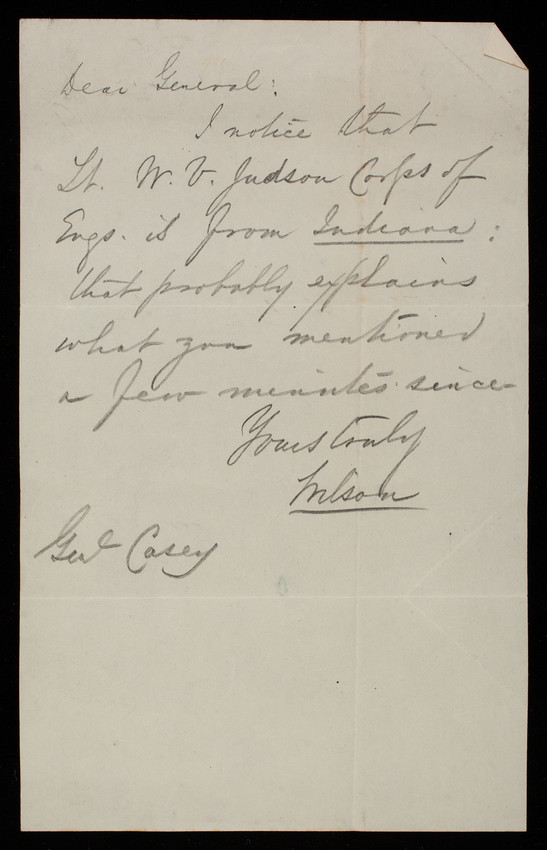 Dear General:
I notice that
Lt. W. V. Judson Corps of
Engs. is from Indiana:
that probably explains
what you mentioned
a few minutes since
Yours truly
Wilson
Genl Casey